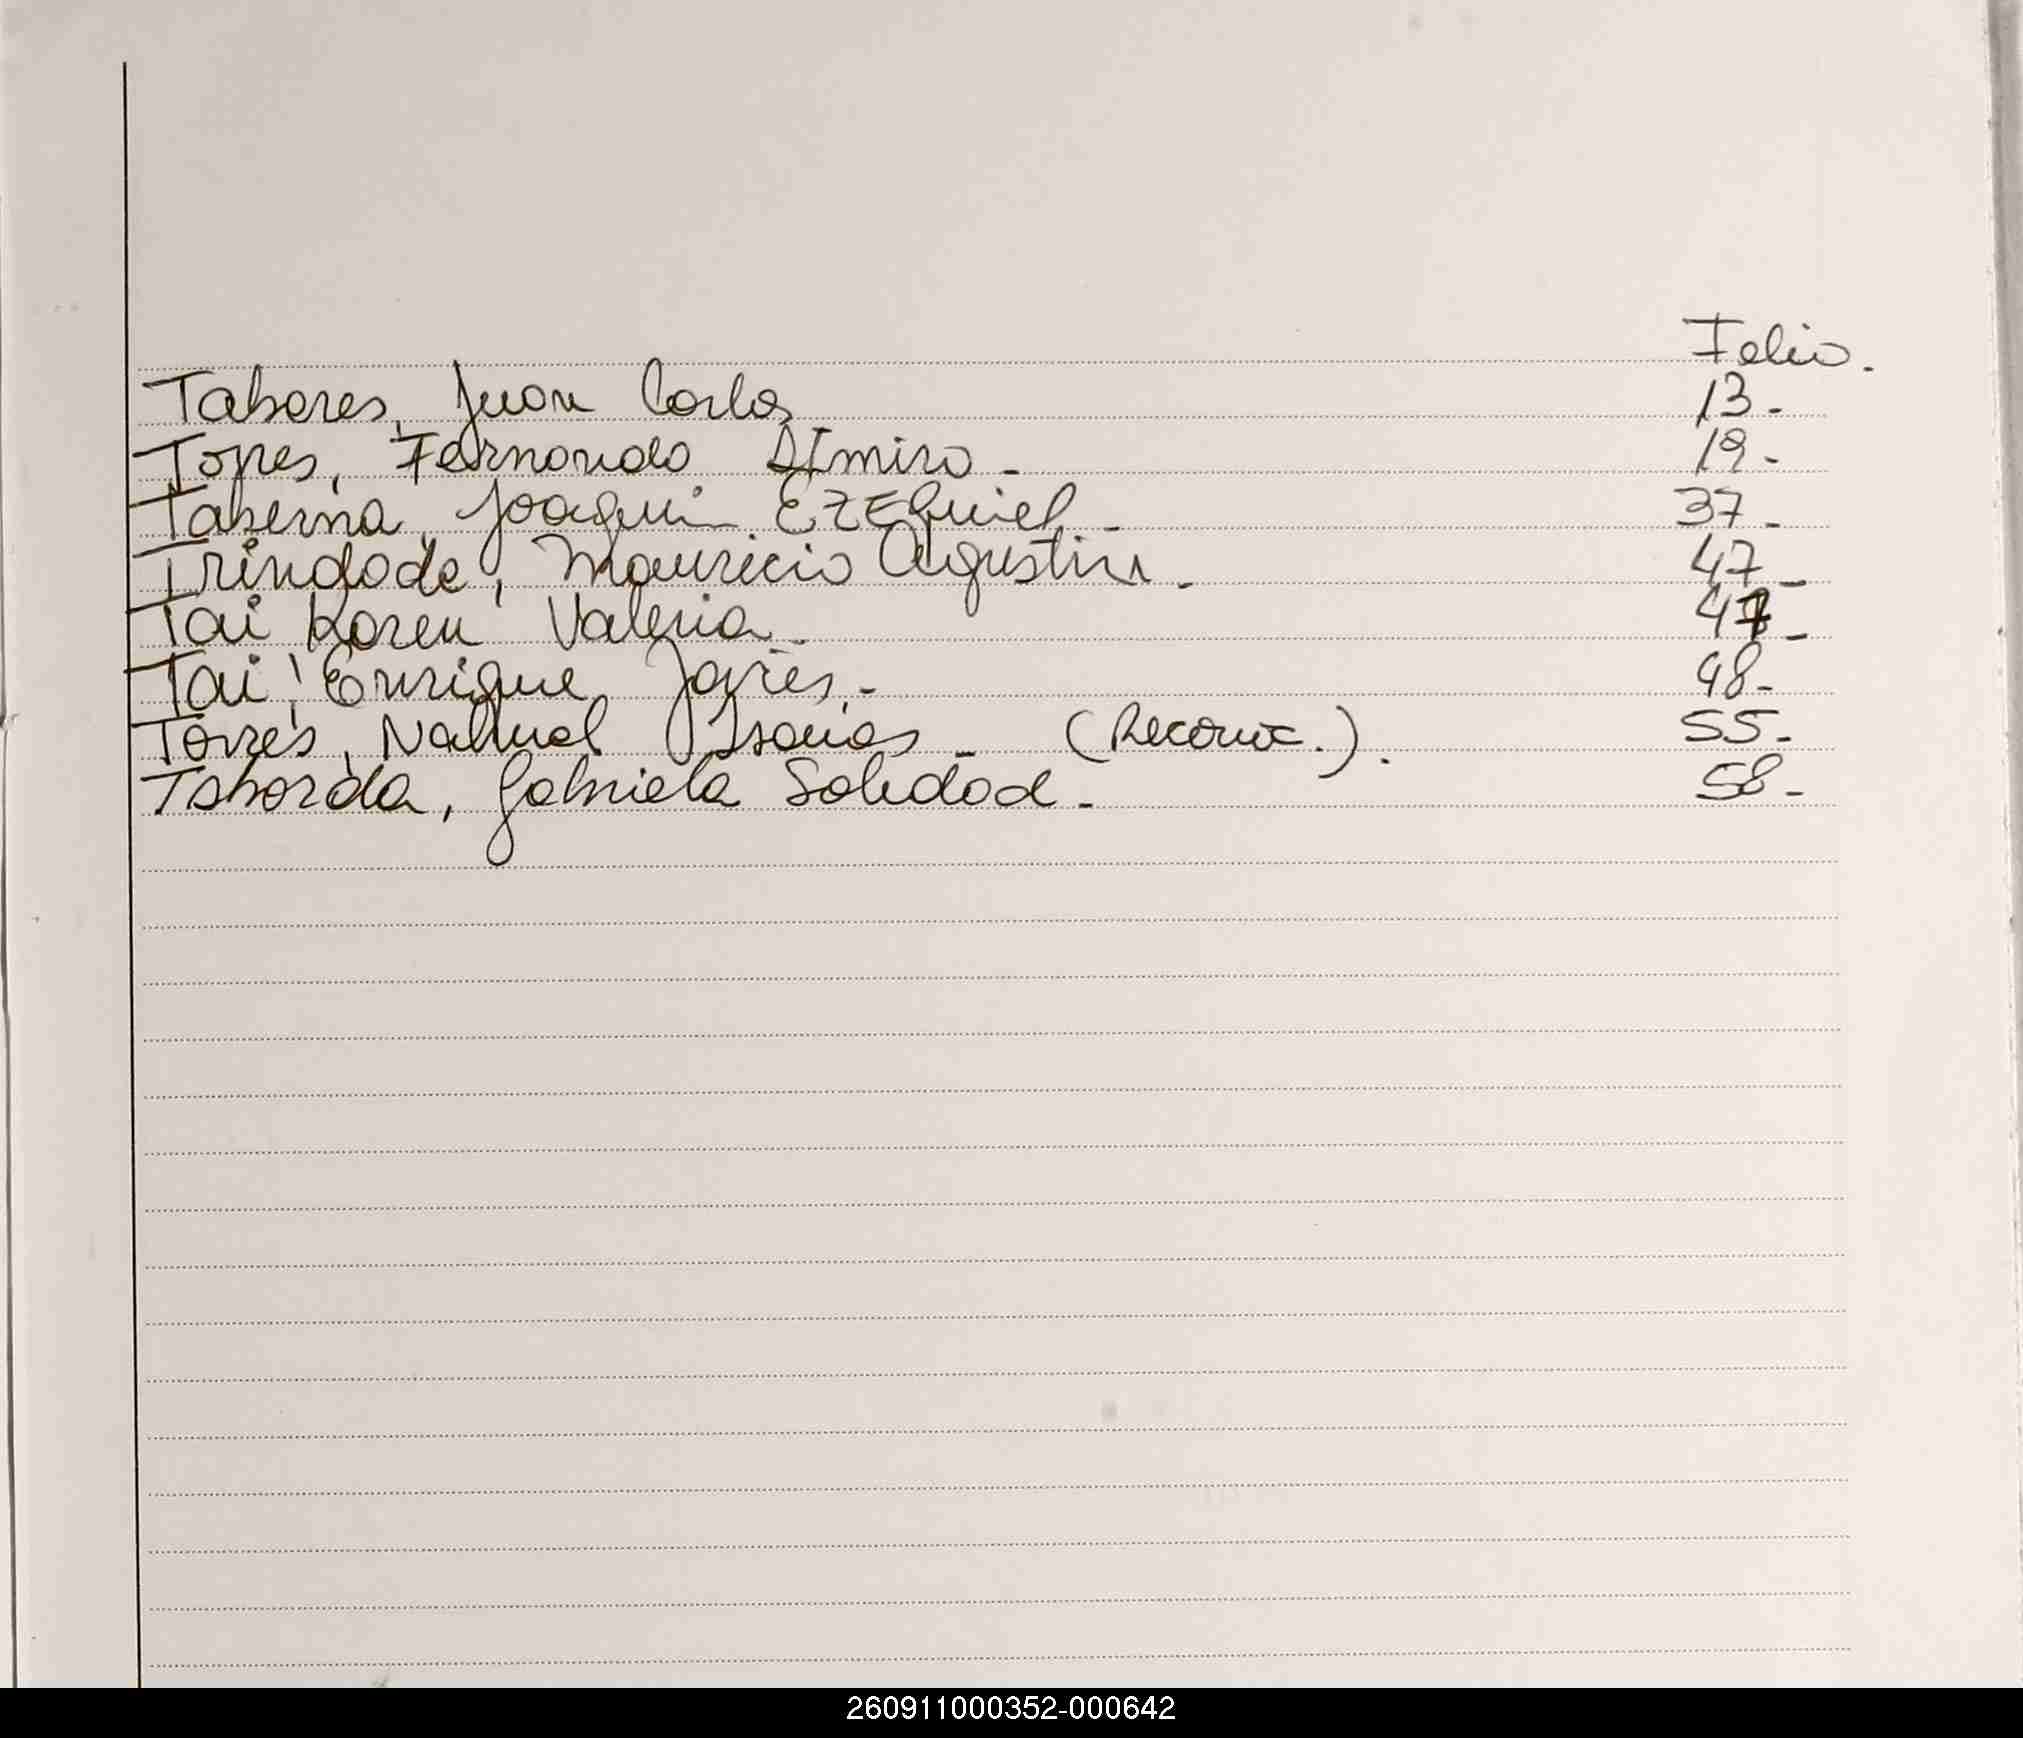 Folio.
Tabores, Juan Carlos 13-
Topes, Fernando Almiro - 19-
Taberna, Joaquin EZEQuiel - 37-
Trindade, Mauricio Agustin - 47-
Tai Karen Valeria - 47-
Tai, Enrique 48-
Torres, Nahuel Isaias - (Reconoc.). 55-
Taborda, Gabriela Soledad - 58-
260911000352-000642